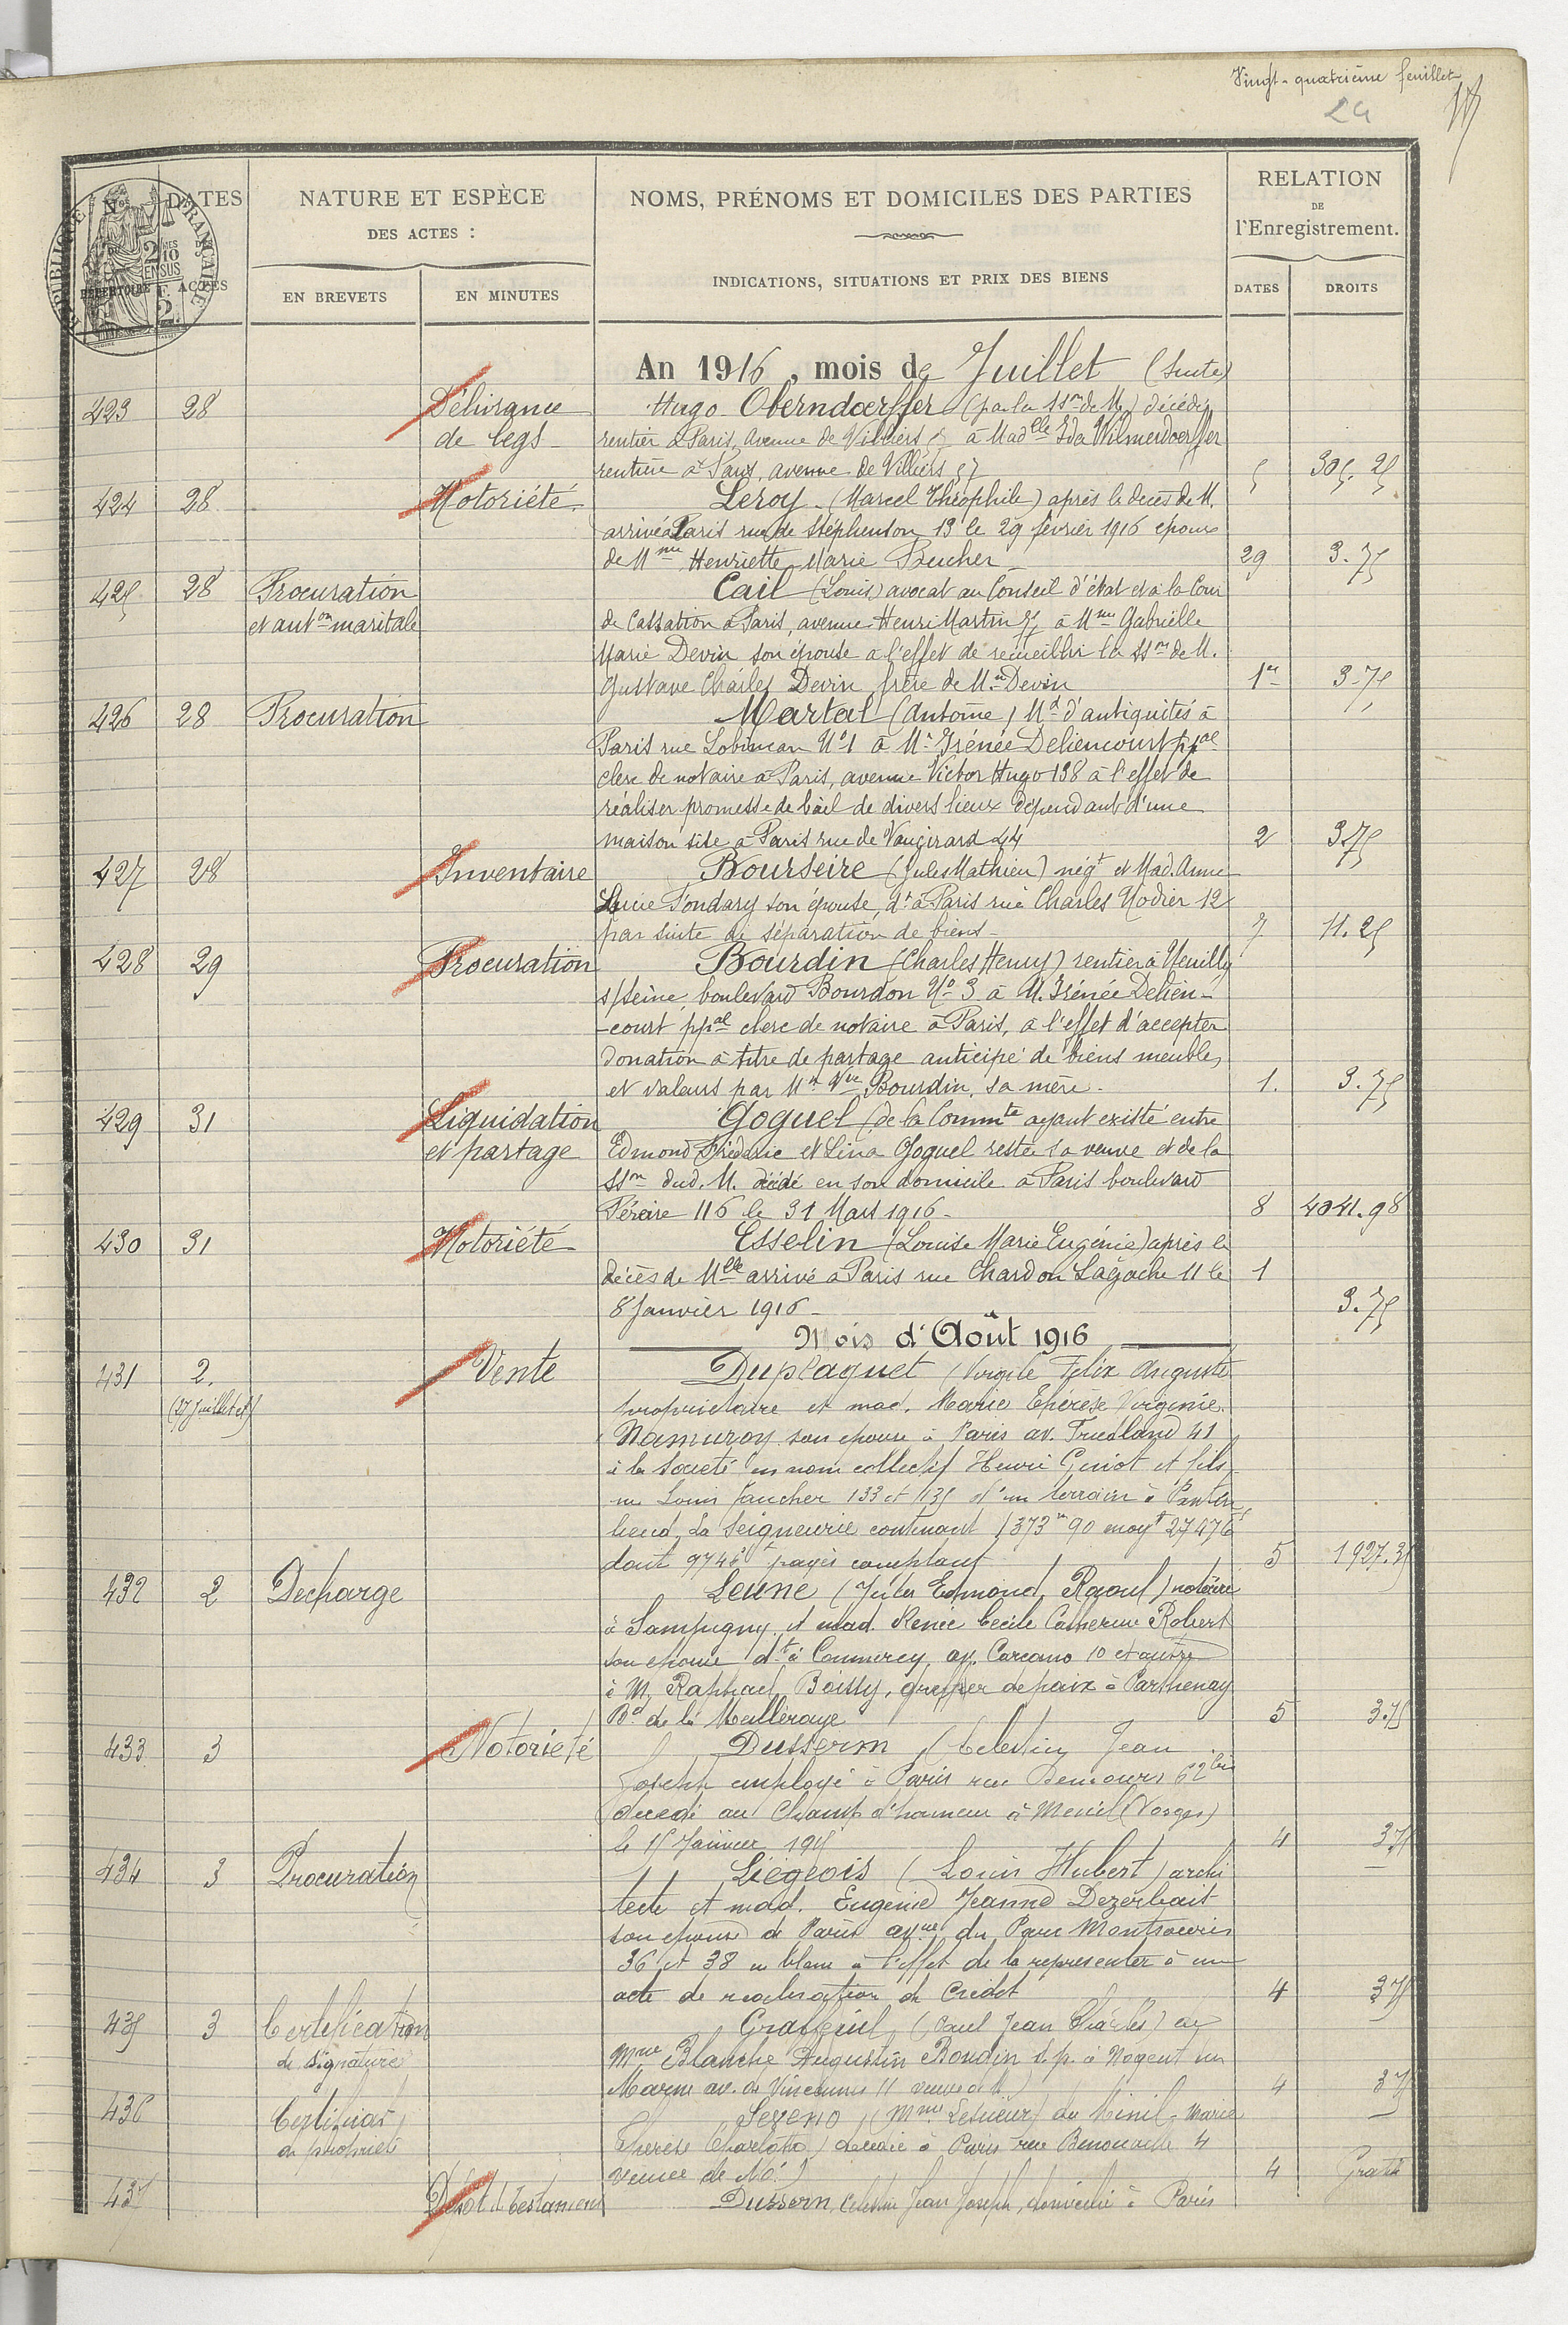 Vingt-quatrième feuillet
24
Nos
DATES DES ACTES
NATURE ET ESPÈCE
DES ACTES :
EN BREVETS
EN MINUTES
NOMS, PRÉNOMS ET DOMICILES DES PARTIES
INDICATIONS, SITUATIONS ET PRIX DES BIENS
RELATION
DE
l'Enregistrement.
DATES
DROITS
RÉPUBLIQUE FRANÇAISE
2/10 MES EN SUS
RÉPERTOIRE
An 1916, mois de Juillet (suite)
423 28 Délivrance Hugo Oberndoerffer (par la ssion de M.) décédé
de legs rentier à Paris, avenue de Villiers 57 à Madelle Ida Wilmersdoerffer
rentière à Paris, avenue de Villiers 57 5 305.25
424 28 Notoriété Leroy (Marcel Théophile) après le décès de M.
arrivé à Paris rue de Stéphenson 19 le 29 février 1916 époux
de Mme Henriette Marie Bucher 29 3.75
425 28 Procuration Cail (Louis) avocat au Conseil d'état et à la Cour
et auton maritale de Cassation à Paris, avenue Henri Martin 77 à Mme Gabrielle
Marie Devin son épouse à l'effet de recueillir la ssion de M.
Gustave Charles Devin frère de Me Devin 1er 3.75
426 28 Procuration Martal (Antoine) Md d'antiquités à
Paris rue Lobineau No 1 à Mr Irénée Deliencourt ppal
clerc de notaire à Paris, avenue Victor Hugo 138 à l'effet de
réaliser promesse de bail de divers lieux dépendant d'une
maison sise à Paris rue de Vaugirard 44 2 3.75
427 28 Inventaire Bourseire (Jules Mathieu) négt et Mad. Anne
Lucie Fondary son épouse, dt à Paris rue Charles Nodier 12
par suite de séparation de biens 7 11.25
428 29 Procuration Bourdin (Charles Henry) rentier à Neuilly
s/Seine, boulevard Bourdon No 3 à M. Irénée Delien-
-court ppal clerc de notaire à Paris, à l'effet d'accepter
donation à titre de partage anticipé de biens meubles,
et valeurs par Me Vve Bourdin, sa mère. 1. 3.75
429 31 Liquidation Goguel (de la Commté ayant existé entre
et partage Edmond Frédéric et Lina Goguel restée sa veuve et de la
ssion dud. M. décédé en son domicile à Paris boulevard
Péreire 116 le 31 Mars 1916. 8 4041.98
430 31 Notoriété Esselin (Louise Marie Eugénie) après le
décès de Melle arrivé à Paris rue Chardon Lagache 11 le 1
8 Janvier 1916 3.75
Mois d'Août 1916
431 2. Vente Duplaquet (Virgile Félix Auguste
(27 Juillet et) propriétaire et mad. Marie Thérèse Virginie
Namuroy son épouse à Paris av. Friedland 41
à la Société en nom collectif Henri Geniot et fils
rue Louis Faucher 133 et 135 d'un terrain à Pantin
lieud. La Seigneurie contenant 1373m 90 moyt 27476f
dont 9746f payés comptant 5 1927.35
432 2 Decharge Leune (Jules Edmond Raoul) notaire
à Sampigny et mad. Renée Cécile Catherine Robert
son épouse dt à Commercy, av. Carcano 10 et autre
à M. Raphael Boissy, greffier de paix à Parthenay
Bd de la Meilleraye 5 3.75
433 3 Notoriété Dusserm (Celestin Jean
Joseph employé à Paris rue Demours 62 bis
décédé au Champ d'honneur à Menil (Vosges)
le 15 Janvier 1915 4 3.75
434 3 Procuration Liégeois (Louis Hubert) archi
tecte et mad. Eugenie Jeanne Dezerbait
son epouse à Paris avnue du Parc Montsouris
36 et 38 en blanc à l'effet de la representer à un
acte de realisation de Credit 4 3.75
435 3 Certification (Paul Jean Charles) de
de signature Mme Blanche Augustin Boudin s.p. à Nogent sur
Marne av. de Vincennes 11 veuve de M.) 4 3.75
436 Certificat Sezeno (Mme Lesueur du Minil-Marie
de propriété Therese Charlotte) décédée à Paris rue Benouville 4
veuve de M.) 4 Gratis
437 Dépôt de testament Dussern, Celestin Jean Joseph, domicilié à Paris